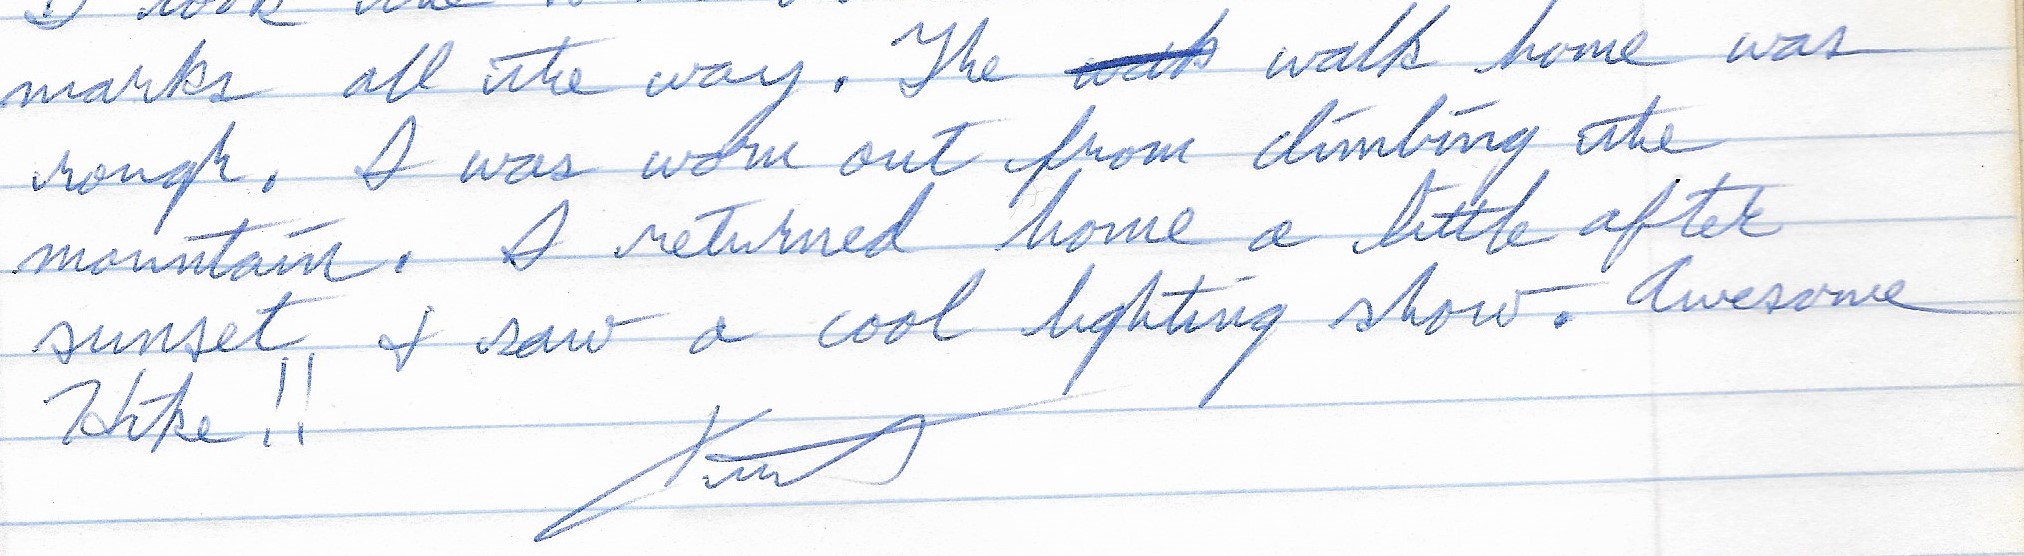 I took the
marks all the way. The walk home was
rough. I was worn out from climbing the
mountain. I returned home a little after
sunset & saw a cool lighting show. Awesome
Hike!!